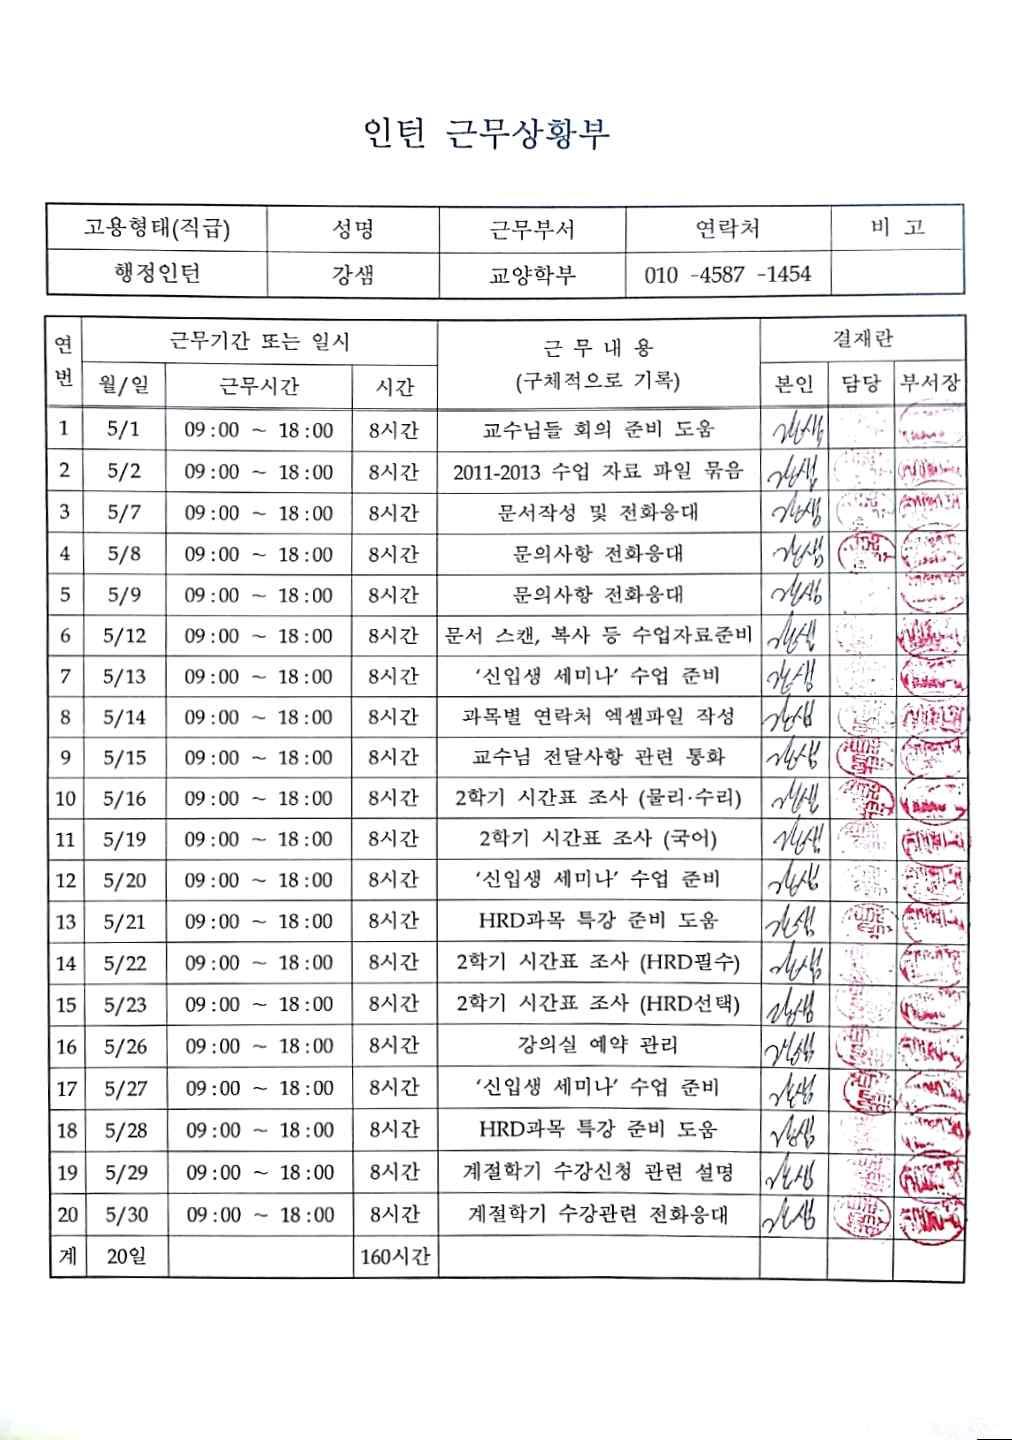 인턴 근무상황부
고용형태(직급) 성명 근무부서 연락처 비 고
행정인턴 강샘 교양학부 010 -4587 -1454
연번 근무기간 또는 일시 근 무 내 용 (구체적으로 기록) 결재란
월/일 근무시간 시간 본인 담당 부서장
1 5/1 09:00 ~ 18:00 8시간 교수님들 회의 준비 도움 강샘
2 5/2 09:00 ~ 18:00 8시간 2011-2013 수업 자료 파일 묶음 강샘
3 5/7 09:00 ~ 18:00 8시간 문서작성 및 전화응대 강샘
4 5/8 09:00 ~ 18:00 8시간 문의사항 전화응대 강샘
5 5/9 09:00 ~ 18:00 8시간 문의사항 전화응대 강샘
6 5/12 09:00 ~ 18:00 8시간 문서 스캔, 복사 등 수업자료준비 강샘
7 5/13 09:00 ~ 18:00 8시간 '신입생 세미나' 수업 준비 강샘
8 5/14 09:00 ~ 18:00 8시간 과목별 연락처 엑셀파일 작성 강샘
9 5/15 09:00 ~ 18:00 8시간 교수님 전달사항 관련 통화 강샘
10 5/16 09:00 ~ 18:00 8시간 2학기 시간표 조사 (물리·수리) 강샘
11 5/19 09:00 ~ 18:00 8시간 2학기 시간표 조사 (국어) 강샘
12 5/20 09:00 ~ 18:00 8시간 '신입생 세미나' 수업 준비 강샘
13 5/21 09:00 ~ 18:00 8시간 HRD과목 특강 준비 도움 강샘
14 5/22 09:00 ~ 18:00 8시간 2학기 시간표 조사 (HRD필수) 강샘
15 5/23 09:00 ~ 18:00 8시간 2학기 시간표 조사 (HRD선택) 강샘
16 5/26 09:00 ~ 18:00 8시간 강의실 예약 관리 강샘
17 5/27 09:00 ~ 18:00 8시간 '신입생 세미나' 수업 준비 강샘
18 5/28 09:00 ~ 18:00 8시간 HRD과목 특강 준비 도움 강샘
19 5/29 09:00 ~ 18:00 8시간 계절학기 수강신청 관련 설명 강샘
20 5/30 09:00 ~ 18:00 8시간 계절학기 수강관련 전화응대 강샘
계 20일 160시간